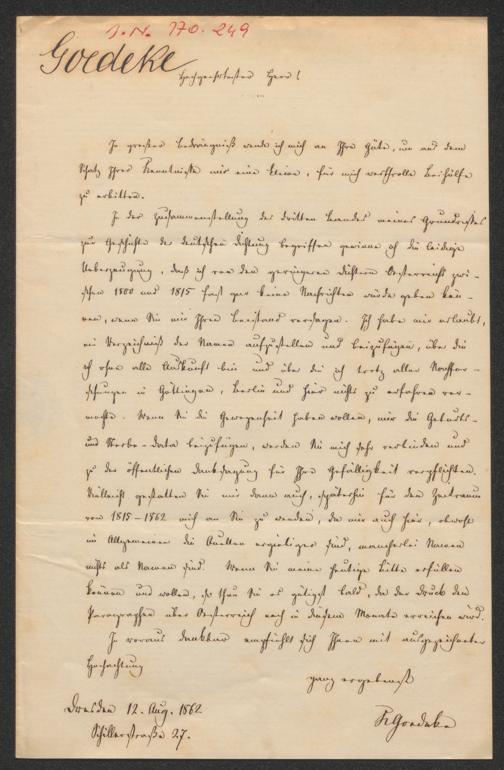 J. N. 170.249
Goedeke
Hochgeehrtester Herr!
In grosser Bedrängniß wende ich mich an Ihre Güte, um aus dem
Schatz Ihrer Kenntnisse mir eine kleine, für mich werthvolle Beihülfe
zu erbitten.
In der Zusammenstellung des dritten Bandes meines Grundrisses
zur Geschichte der deutschen Dichtung begriffen gewinne ich die leidige
Ueberzeugung, daß ich von den geringeren Dichtern Oesterreichs zwi-
schen 1800 und 1815 fast gar keine Nachrichten würde geben kön-
nen, wenn Sie mir Ihren Beistand versagen. Ich habe mir erlaubt,
ein Verzeichniß der Namen aufzustellen und beizufügen, über die
ich ohne alle Auskunft bin und über die ich trotz aller Nachfor-
schungen in Göttingen, Berlin und hier nichts zu erfahren ver-
mochte. Wenn Sie die Gewogenheit haben wollen, mir die Geburts-
und Sterbe-Data beizufügen, werden Sie mich sehr verbinden und
zu der öffentlichen Danksagung für Ihre Gefälligkeit verpflichten.
Vielleicht gestatten Sie mir dann auch, späterhin für den Zeitraum
von 1815-1862 mich an Sie zu wenden, da mir auch hier, obwohl
im Allgemeinen die Quellen ergiebiger sind, mancherlei Namen
nichts als Namen sind. Wenn Sie meine heutige Bitte erfüllen
können und wollen, so thun Sie es gütigst bald, da der Druck den
Paragraphen über Oesterreich noch in diesem Monate erreichen wird.
In voraus dankbar empfiehlt sich Ihnen mit ausgezeichneter
Hochachtung
ganz ergebenst
Dresden 12. Aug. 1862
KGoedeke
Schillerstraße 27.